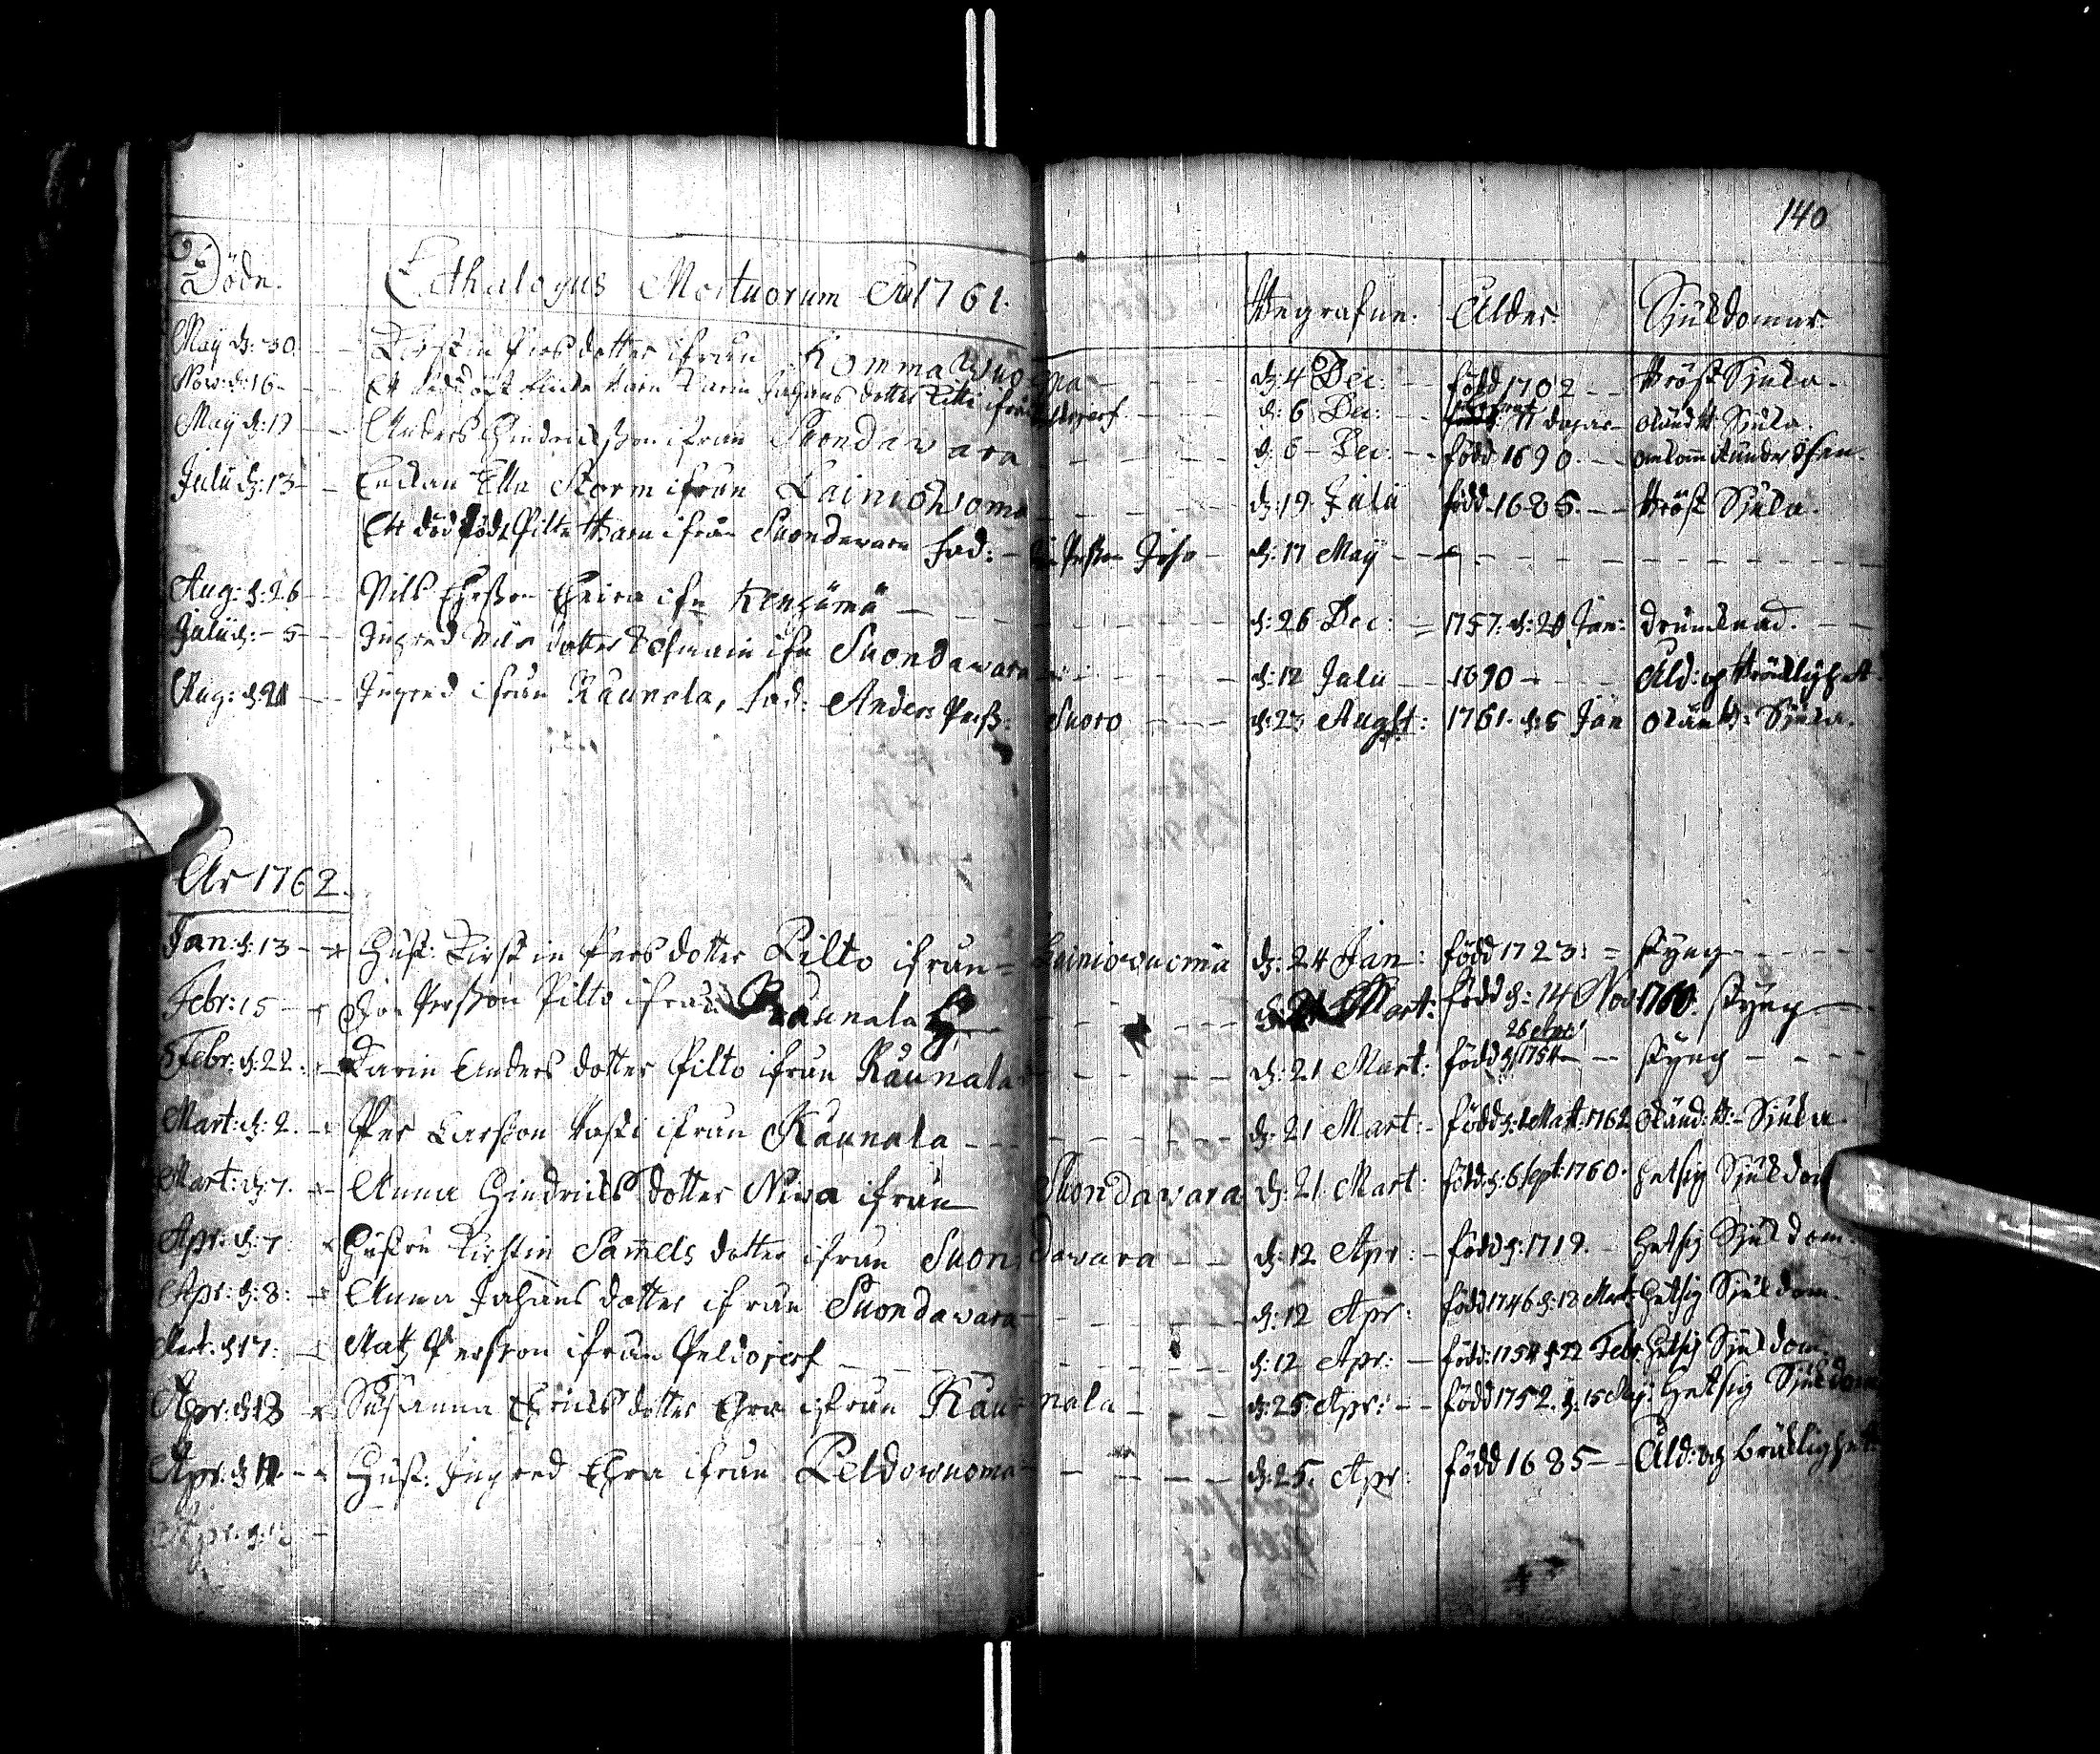 140
Döde. Cathalogus Mortuorum År 1761. Begrafne. Ålder. Sjukdomar.
May d: 30 Kirstin Pers dotter ifrån Kommawuoma d: 4 Dec: född 1702 Bröst Sjuka
Nov: d: 16 Ett Barn Karin Johans dotter ifrån d: 6 Dec: 11 dagar okänd Sjuka
May d: 17 Anders Hindricsson ifrån Suondawara d: 6 Dec: född 1690
Julii d: 13 Enkan Ella Storm ifrån Lainiowoma d: 19 Julii född 1685 Bröst Sjuka
Ett död född Pilte Barn ifrån Suondawara fad: d: 17 May
Aug: d: 26 Nils ifr Kengämä d: 26 Dec: 1757. d: 20 Jan: drunknad.
Julii d: 5 Ingred Nils dotter ifr Suondawara d: 12 Julii 1690 Åld: og Bräcklighet
Aug: d: 21 Ingred ifrån Raunala, fad: Anders Perss: Suoro d: 23 Augst: 1761. d: 5 Jan okänd: Sjuka.
År 1762.
Jan: d: 13 Hust: Kirstin Pers dotter Pilto ifrån Lainiowuoma d: 24 Jan: född 1723: styng
Febr: 15 Persson Pilto ifrån Raunala d: 21 Mart: född d: 14 Nov 1760. styng
Febr: d: 22. Karin Anders dotter Pilto ifrån Raunala d: 21 Mart: född d: 1754 styng
Mart: d: 2. Per Larsson ifrån Raunala d: 21 Mart: född d: 1 Mart: 1762 Okänd: Sjuka
Mart: d: 7. Anna Hindrics dotter Niva ifrån Suondavara d: 21 Mart: född d: 6 Sept: 1760. hetsig Sjukdom
Apr: d: 7 Hustru Kirstin Samels dotter ifrån Suondavara d: 12 Apr: född d: 1719. hetsig Sjukdom
Apr: d: 8: Anna Johans dotter ifrån Suondavara d: 12 Apr: född 1746 d: 12 Mart: hetsig Sjukdom.
Mart: d: 17: Matz Persson ifrån Peldojerf d: 12 Apr: född: 1754 d: 22 Febr: hetsig Sjukdom.
Apr: d: 13 Susanna Erics dotter ifrån Raunala d: 25 Apr: född 1752. d: 15 May: hetsig Sjukdom
Apr: d: 11. Hust: Ingred ifrån Peldowuoma d: 25. Apr: född 1685 Åld: og bräklighet
Apr: d: